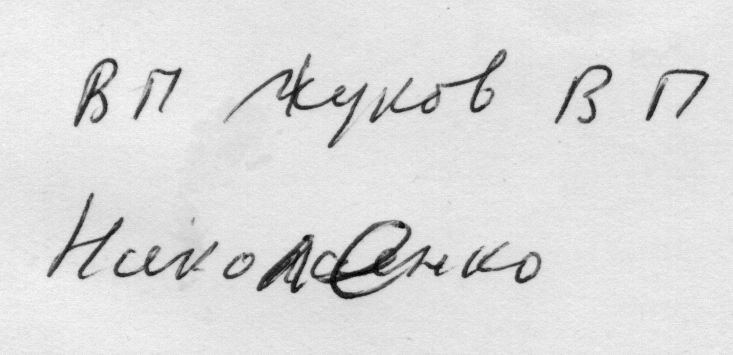 ВП Жуков ВП
Николаенко